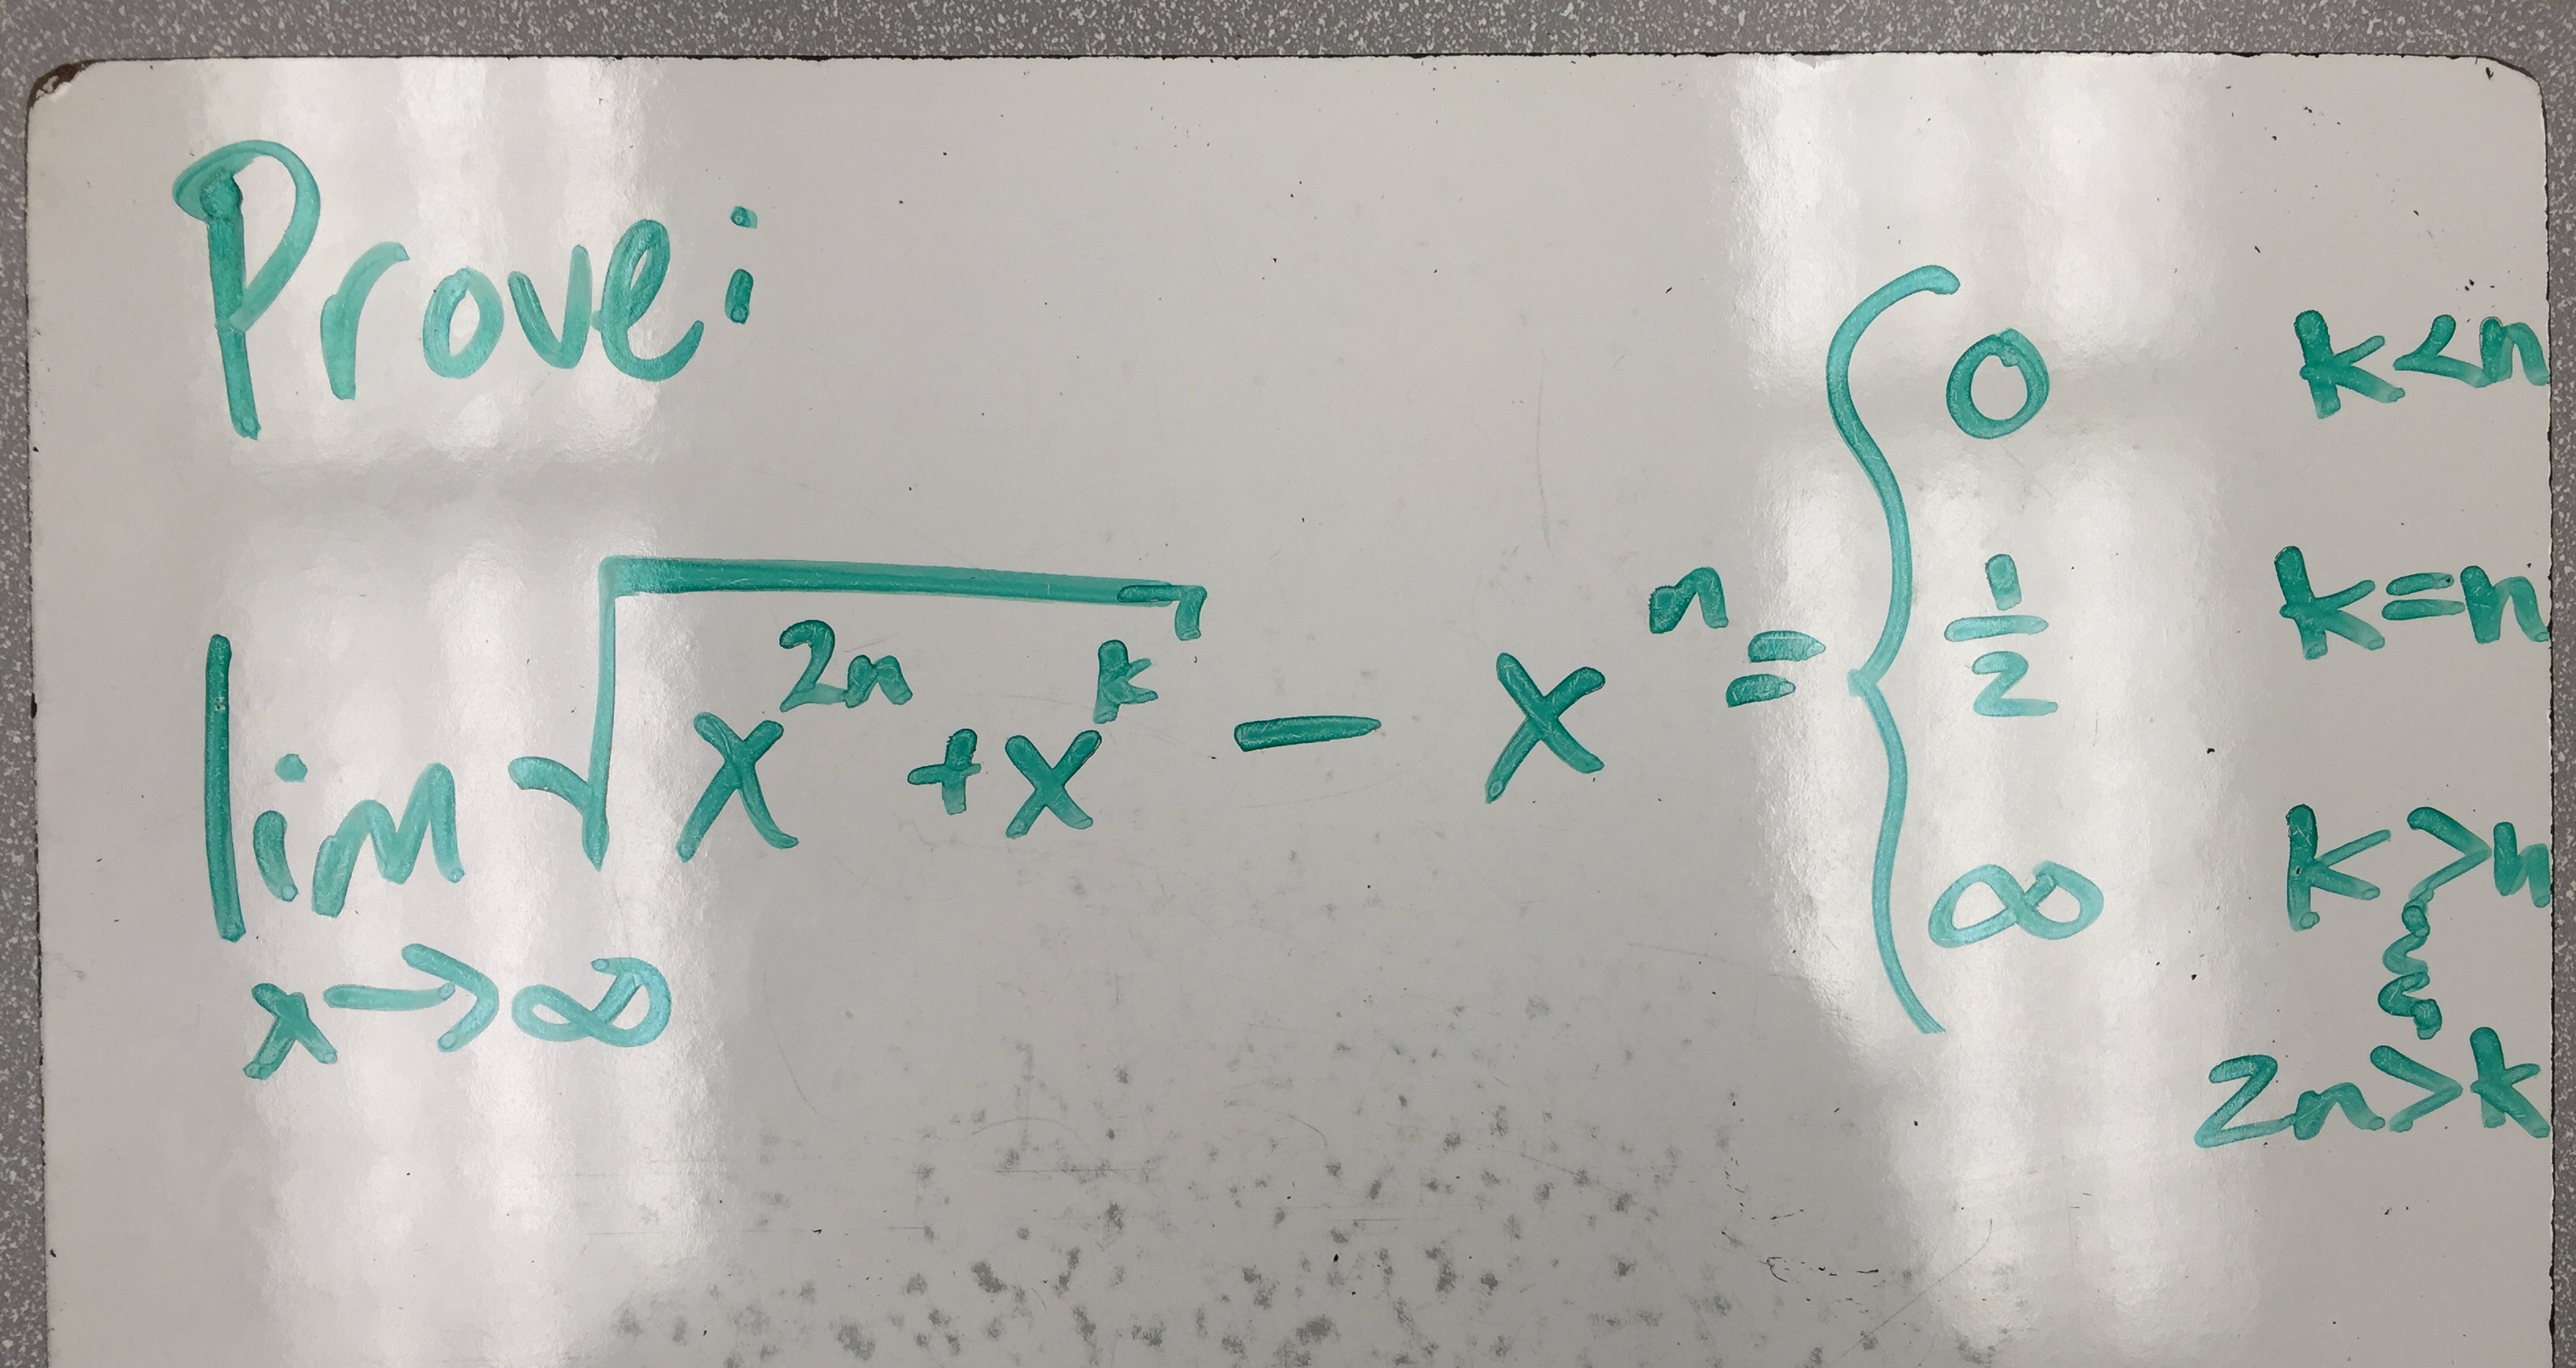 Prove:
lim √(x^2n + x^k) - x^n = { 0 k<n
1/2 k=n
∞ k>n
x→∞
2n>k